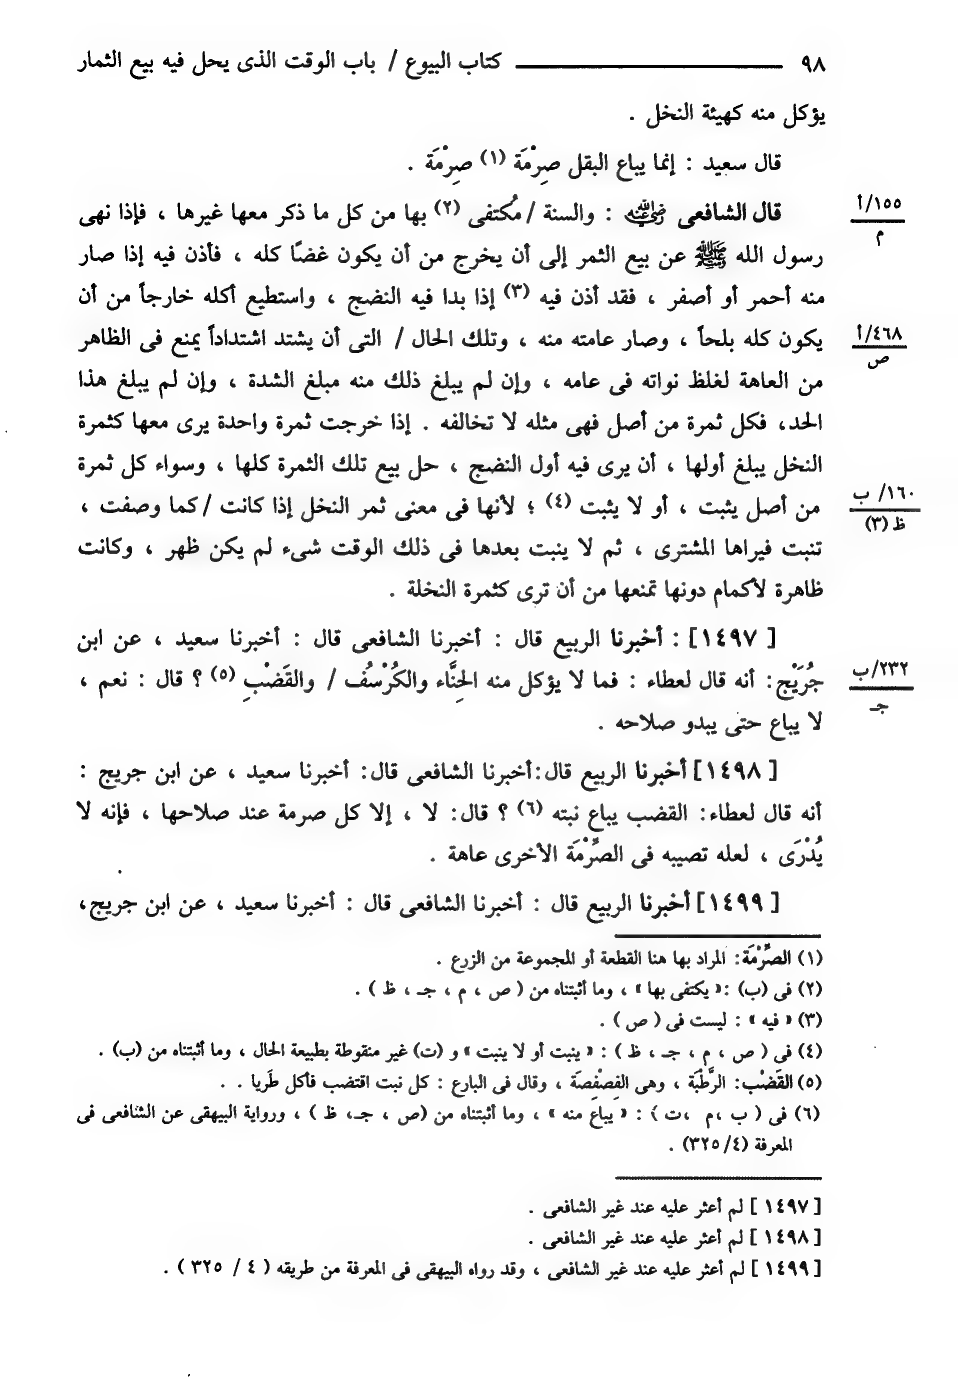 ٩٨ ــــــــــ كتاب البيوع / باب الوقت الذى يحل فيه بيع الثمار
يؤكل منه كهيئة النخل .
قال سعيد : إنما يباع البقل صِرْمَة (١) صِرْمَة .
قال الشافعى رضي الله عنه : والسنة / مُكتفى (٢) بها من كل ما ذكر معها غيرها ، فإذا نهى
١٥٥/أ
م
رسول الله ﷺ عن بيع الثمر إلى أن يخرج من أن يكون غضًا كله ، فأذن فيه إذا صار
منه أحمر أو أصفر ، فقد أذن فيه (٣) إذا بدا فيه النضج ، واستطيع أكله خارجاً من أن
يكون كله بلحاً ، وصار عامته منه ، وتلك الحال / التى أن يشتد اشتداداً يمنع فى الظاهر
٤٦٨/أ
ص
من العاهة لغلظ نواته فى عامه ، وإن لم يبلغ ذلك منه مبلغ الشدة ، وإن لم يبلغ هذا
الحد، فكل ثمرة من أصل فهى مثله لا تخالفه . إذا خرجت ثمرة واحدة يرى معها كثمرة
النخل يبلغ أولها ، أن يرى فيه أول النضج ، حل بيع تلك الثمرة كلها ، وسواء كل ثمرة
من أصل يثبت ، أو لا يثبت (٤) ؛ لأنها فى معنى ثمر النخل إذا كانت / كما وصفت ،
١٦٠/ ب
ظ (٣)
تنبت فيراها المشترى ، ثم لا ينبت بعدها فى ذلك الوقت شىء لم يكن ظهر ، وكانت
ظاهرة لأكمام دونها تمنعها من أن ترى كثمرة النخلة .
[ ١٤٩٧] : أخبرنا الربيع قال : أخبرنا الشافعى قال : أخبرنا سعيد ، عن ابن
جُرَيْج: أنه قال لعطاء : فما لا يؤكل منه الحِنَّاء والكُرْسُف / والقَضْبِ (٥) ؟ قال : نعم ،
٢٣٢/ب
جـ
لا يباع حتى يبدو صلاحه .
[ ١٤٩٨] أخبرنا الربيع قال:أخبرنا الشافعى قال: أخبرنا سعيد ، عن ابن جريج :
أنه قال لعطاء: القضب يباع نبته (٦) ؟ قال: لا ، إلا كل صرمة عند صلاحها ، فإنه لا
يُدْرَى ، لعله تصيبه فى الصِّرْمَة الأخرى عاهة .
[ ١٤٩٩] أخبرنا الربيع قال : أخبرنا الشافعى قال : أخبرنا سعيد ، عن ابن جريج،
(١) الصِّرْمَة: المراد بها هنا القطعة أو المجموعة من الزرع .
(٢) فى (ب) :« يكتفى بها » ، وما أثبتناه من ( ص ، م ، جـ ، ظ ) .
(٣) « فيه » : ليست فى ( ص ) .
(٤) فى ( ص ، م ، جـ ، ظ ) : « ينبت أو لا ينبت » و (ت) غير منقوطة بطبيعة الحال ، وما أثبتناه من (ب) .
(٥) القَضْب: الرَّطْبَة ، وهى الفِصْفِصَة ، وقال فى البارع : كل نبت اقتضب فأكل طَريا . .
(٦) فى ( ب ،م ،ت ) : « يباع منه » ، وما أثبتناه من (ص ، جـ، ظ ) ، ورواية البيهقى عن الشافعى فى
المعرفة (٤/ ٣٢٥) .
[ ١٤٩٧ ] لم أعثر عليه عند غير الشافعى .
[ ١٤٩٨ ] لم أعثر عليه عند غير الشافعى .
[ ١٤٩٩ ] لم أعثر عليه عند غير الشافعى ، وقد رواه البيهقى فى المعرفة من طريقه ( ٤ / ٣٢٥ ) .